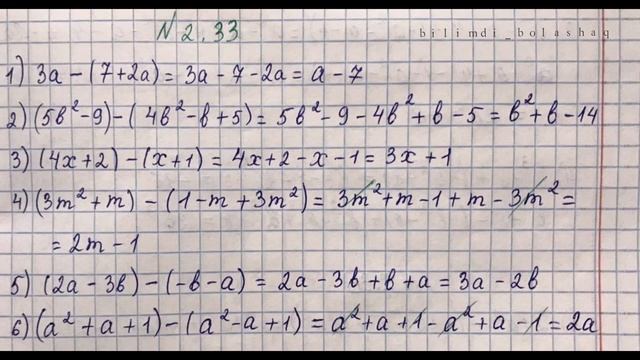 N 2.33
bilimdi_bolashaq
1) 3a - (7+2a) = 3a - 7 - 2a = a - 7
2) (5b² - 9) - (4b² - b + 5) = 5b² - 9 - 4b² + b - 5 = b² + b - 14
3) (4x+2) - (x+1) = 4x + 2 - x - 1 = 3x + 1
4) (3m² + m) - (1 - m + 3m²) = 3m² + m - 1 + m - 3m² =
= 2m - 1
5) (2a - 3b) - (-b - a) = 2a - 3b + b + a = 3a - 2b
6) (a² + a + 1) - (a² - a + 1) = a² + a + 1 - a² + a - 1 = 2a